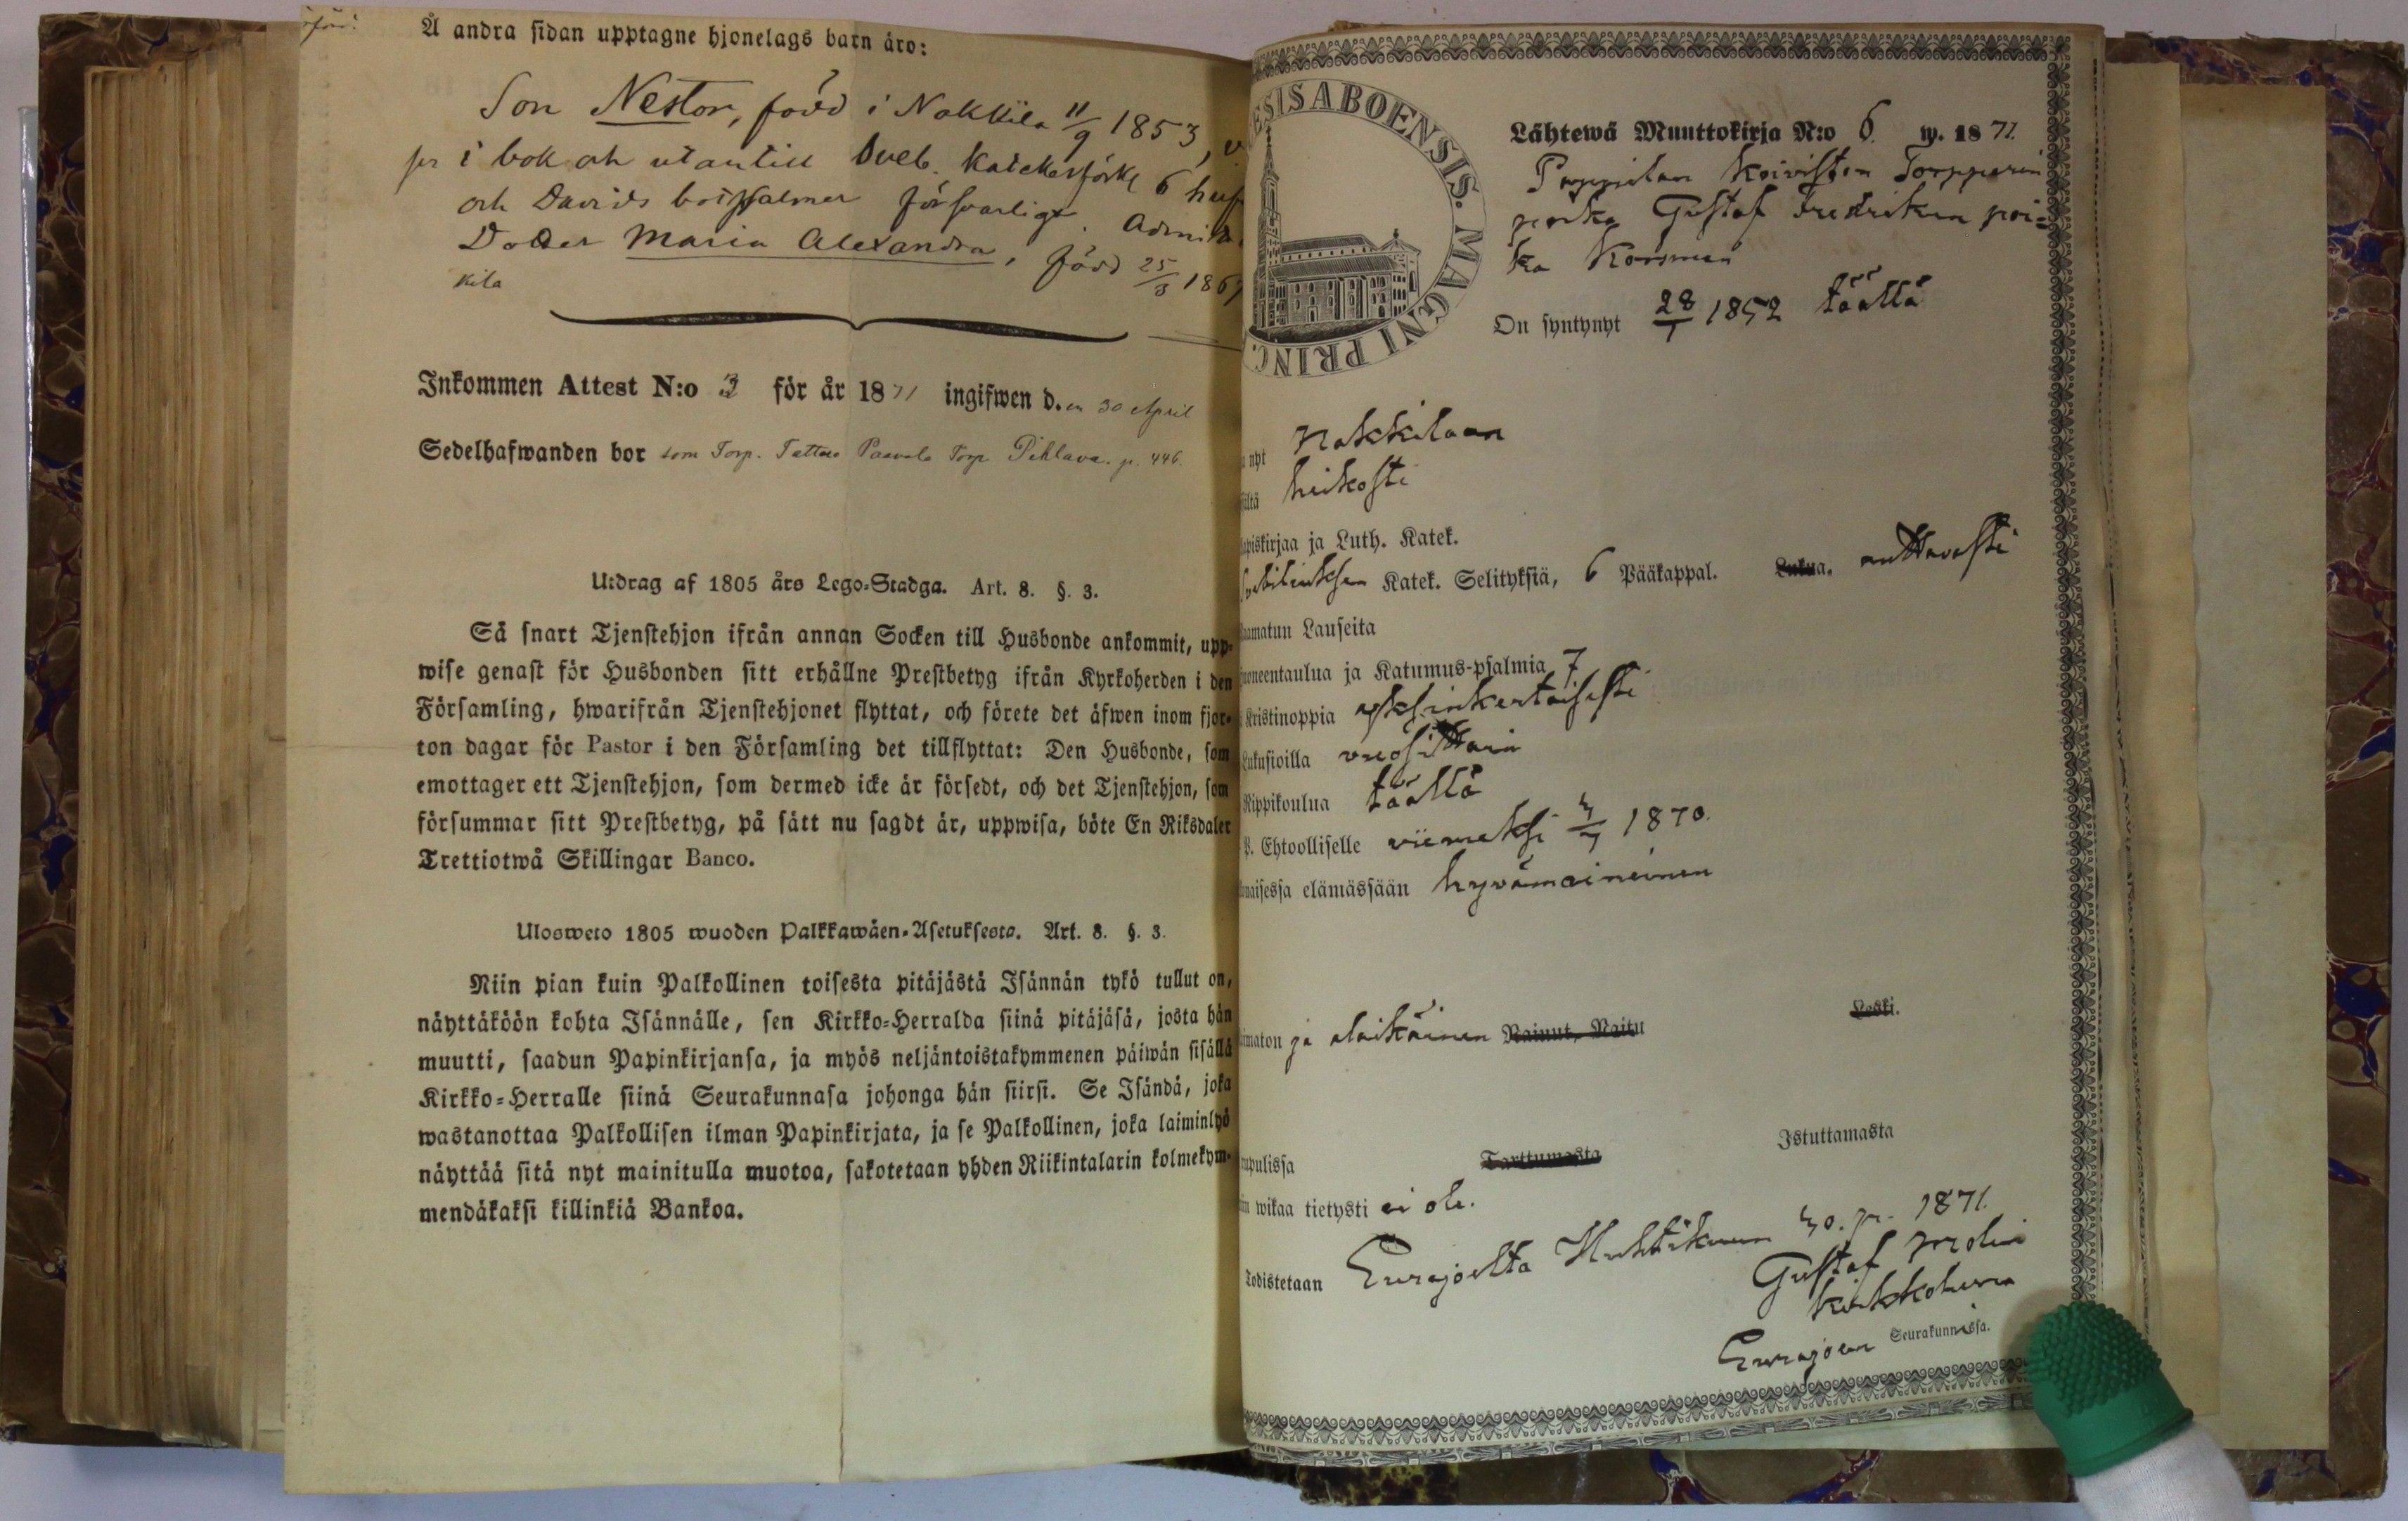 Å andra sidan upptagne hjonelags barn äro:
Son Nestor, född i Nakkila 11/9 1853,
i bok och utantill Sveb. Katekesförkl 6 huf
och Davids botpsalmer försvarligt. Admitt.
Dotter Maria Alexandra, född 25/3 186
kila
Inkommen Attest N:o 3 för år 1871 ingifwen d.en 30 April
Sedelhafwanden bor som Torp. Tattara Paavola Torp Pihlava. p. 446.
Utdrag af 1805 års Lego-Stadga. Art. 8. §. 3.
Så snart Tjenstehjon ifrån annan Socken till Husbonde ankommit, upp-
wise genast för Husbonden sitt erhållne Prestbetyg ifrån Kyrkoherden i den
Församling, hwarifrån Tjenstehjonet flyttat, och förete det äfwen inom fjor-
ton dagar för Pastor i den Församling det tillflyttat: Den Husbonde, som
emottager ett Tjenstehjon, som dermed icke är försedt, och det Tjenstehjon, som
försummar sitt Prestbetyg, på sätt nu sagdt är, uppwisa, böte En Riksdaler
Trettiotwå Skillingar Banco.
Ulosweto 1805 wuoden Palkkawäen-Asetuksesta. Art. 8. §. 3.
Niin pian kuin Palkollinen toisesta pitäjästä Isännän tykö tullut on,
näyttäköön kohta Isännälle, sen Kirkko-Herralda siinä pitäjäsä, josta hän
muutti, saadun Papinkirjansa, ja myös neljäntoistakymmenen päiwän sisällä
Kirkko-Herralle siinä Seurakunnasa johonga hän siirsi. Se Isändä, joka
wastanottaa Palkollisen ilman Papinkirjata, ja se Palkollinen, joka laiminlyö
näyttää sitä nyt mainitulla muotoa, sakotetaan yhden Riikintalarin kolmekym-
mendäkaksi killinkiä Bankoa.
ESIS ABOENSIS. MAGNI PRINC.
Lähtewä Muuttokirja N:o 6. w. 1871.
Pappilan Koiviston Torpparin
poika Gustaf Fredrikin poi-
ka Korsman
On syntynyt 28/1 1852 täällä
nyt Nakkilaan
ältä heikosti
apiskirjaa ja Luth. Katek.
Svebiliuksen Katek. Selityksiä, 6 Pääkappal. Lukua. auttavasti
aamatun Lauseita
uoneentaulua ja Katumus-psalmia 7
Kristinoppia yksinkertaisesti
Lukusioilla vuosittain
Rippikoulua täällä
P. Ehtoolliselle viimeksi 3/7 1870.
maisessa elämässään hyvämaineinen
imaton ja alaikäinen Nainut, Naitu Leski.
mpulissa Tarttumasta Istuttamasta
in wikaa tietysti ei ole.
Todistetaan Eurajoelta Huhtikuun 30. p. 1871.
Gustaf Molin
Kirkkoherra
Eurajoen Seurakunnissa.